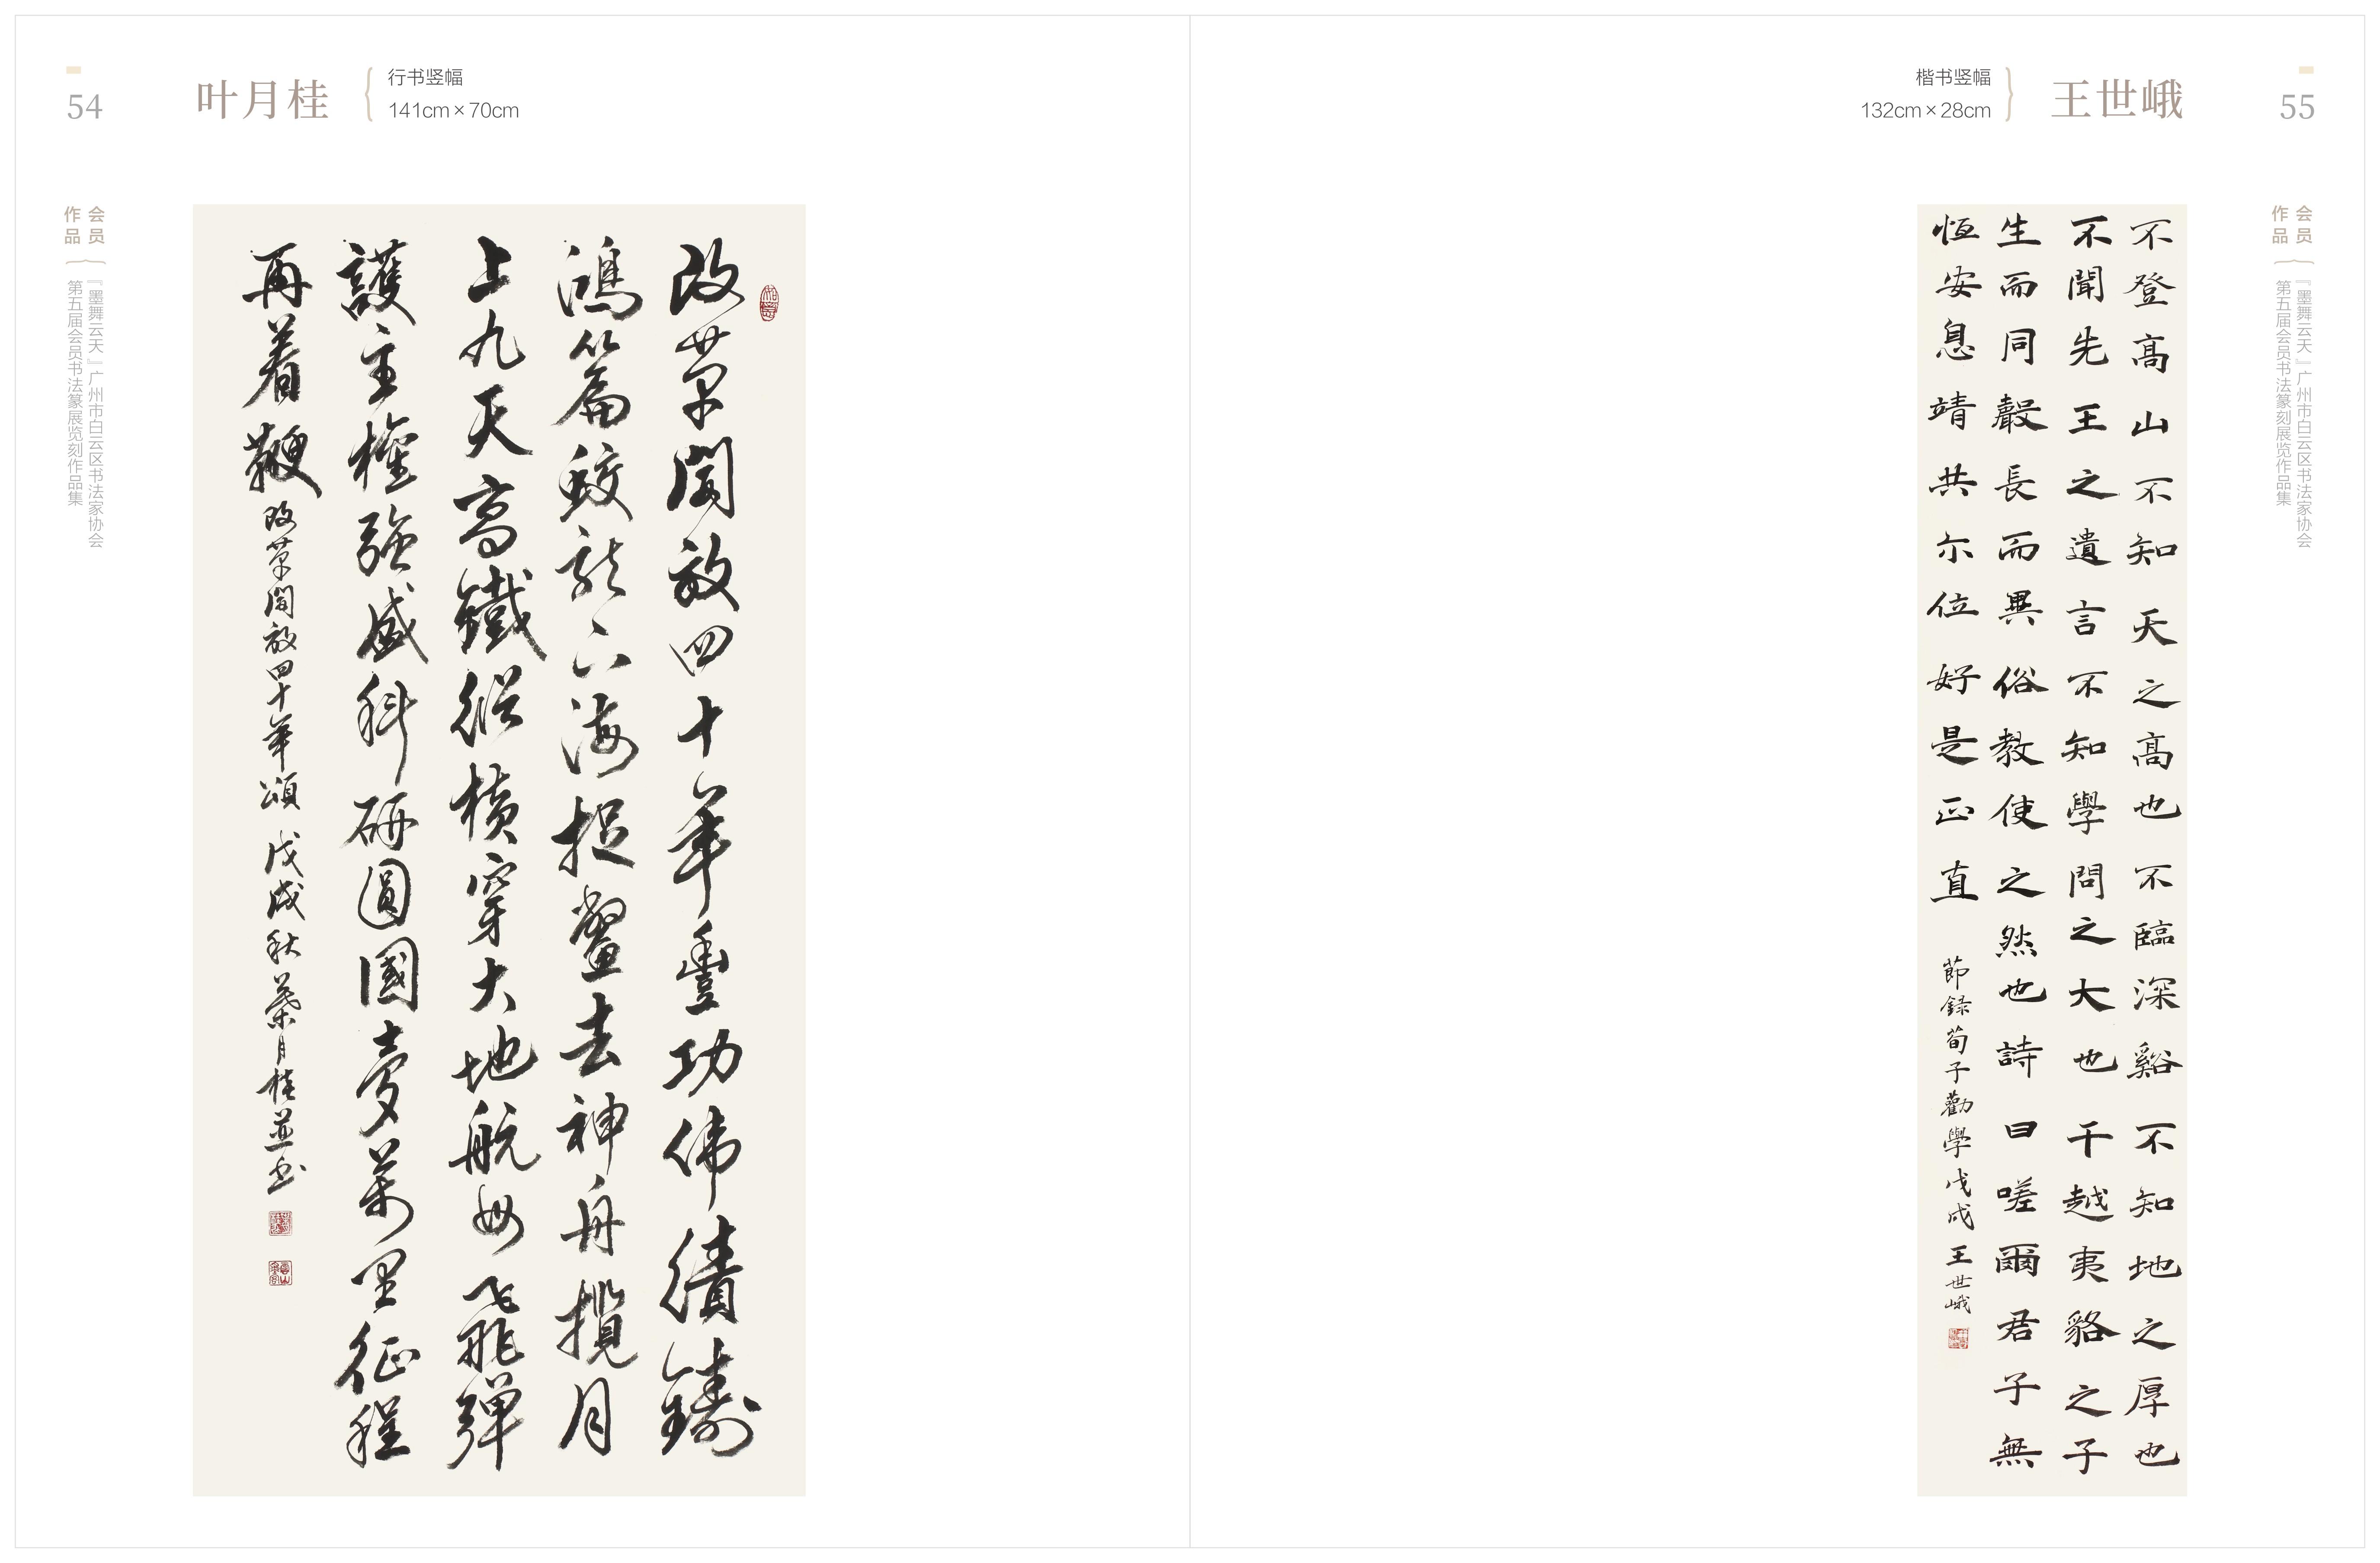 54
叶月桂
行书竖幅
141cm×70cm
会员
作品
『墨舞云天』广州市白云区书法家协会
第五届会员书法篆展览刻作品集
改革開放四十年豐功偉績鑄
鴻篇蛟龍下海捉鱉去神舟攬月
上九天高鐵縱橫穿大地航母飛彈
護主權強盛科研圓國夢萬里征程
再着鞭
改革開放四十年頌 戊戌秋葉月桂並书
楷书竖幅
132cm×28cm
王世峨
55
会员
作品
『墨舞云天』广州市白云区书法家协会
第五届会员书法篆刻展览作品集
不登高山不知天之高也不臨深谿不知地之厚也
不聞先王之遺言不知學問之大也干越夷貉之子
生而同聲長而異俗教使之然也詩曰嗟爾君子無
恆安息靖共尔位好是正直
節録荀子勸學戊戌王世峨